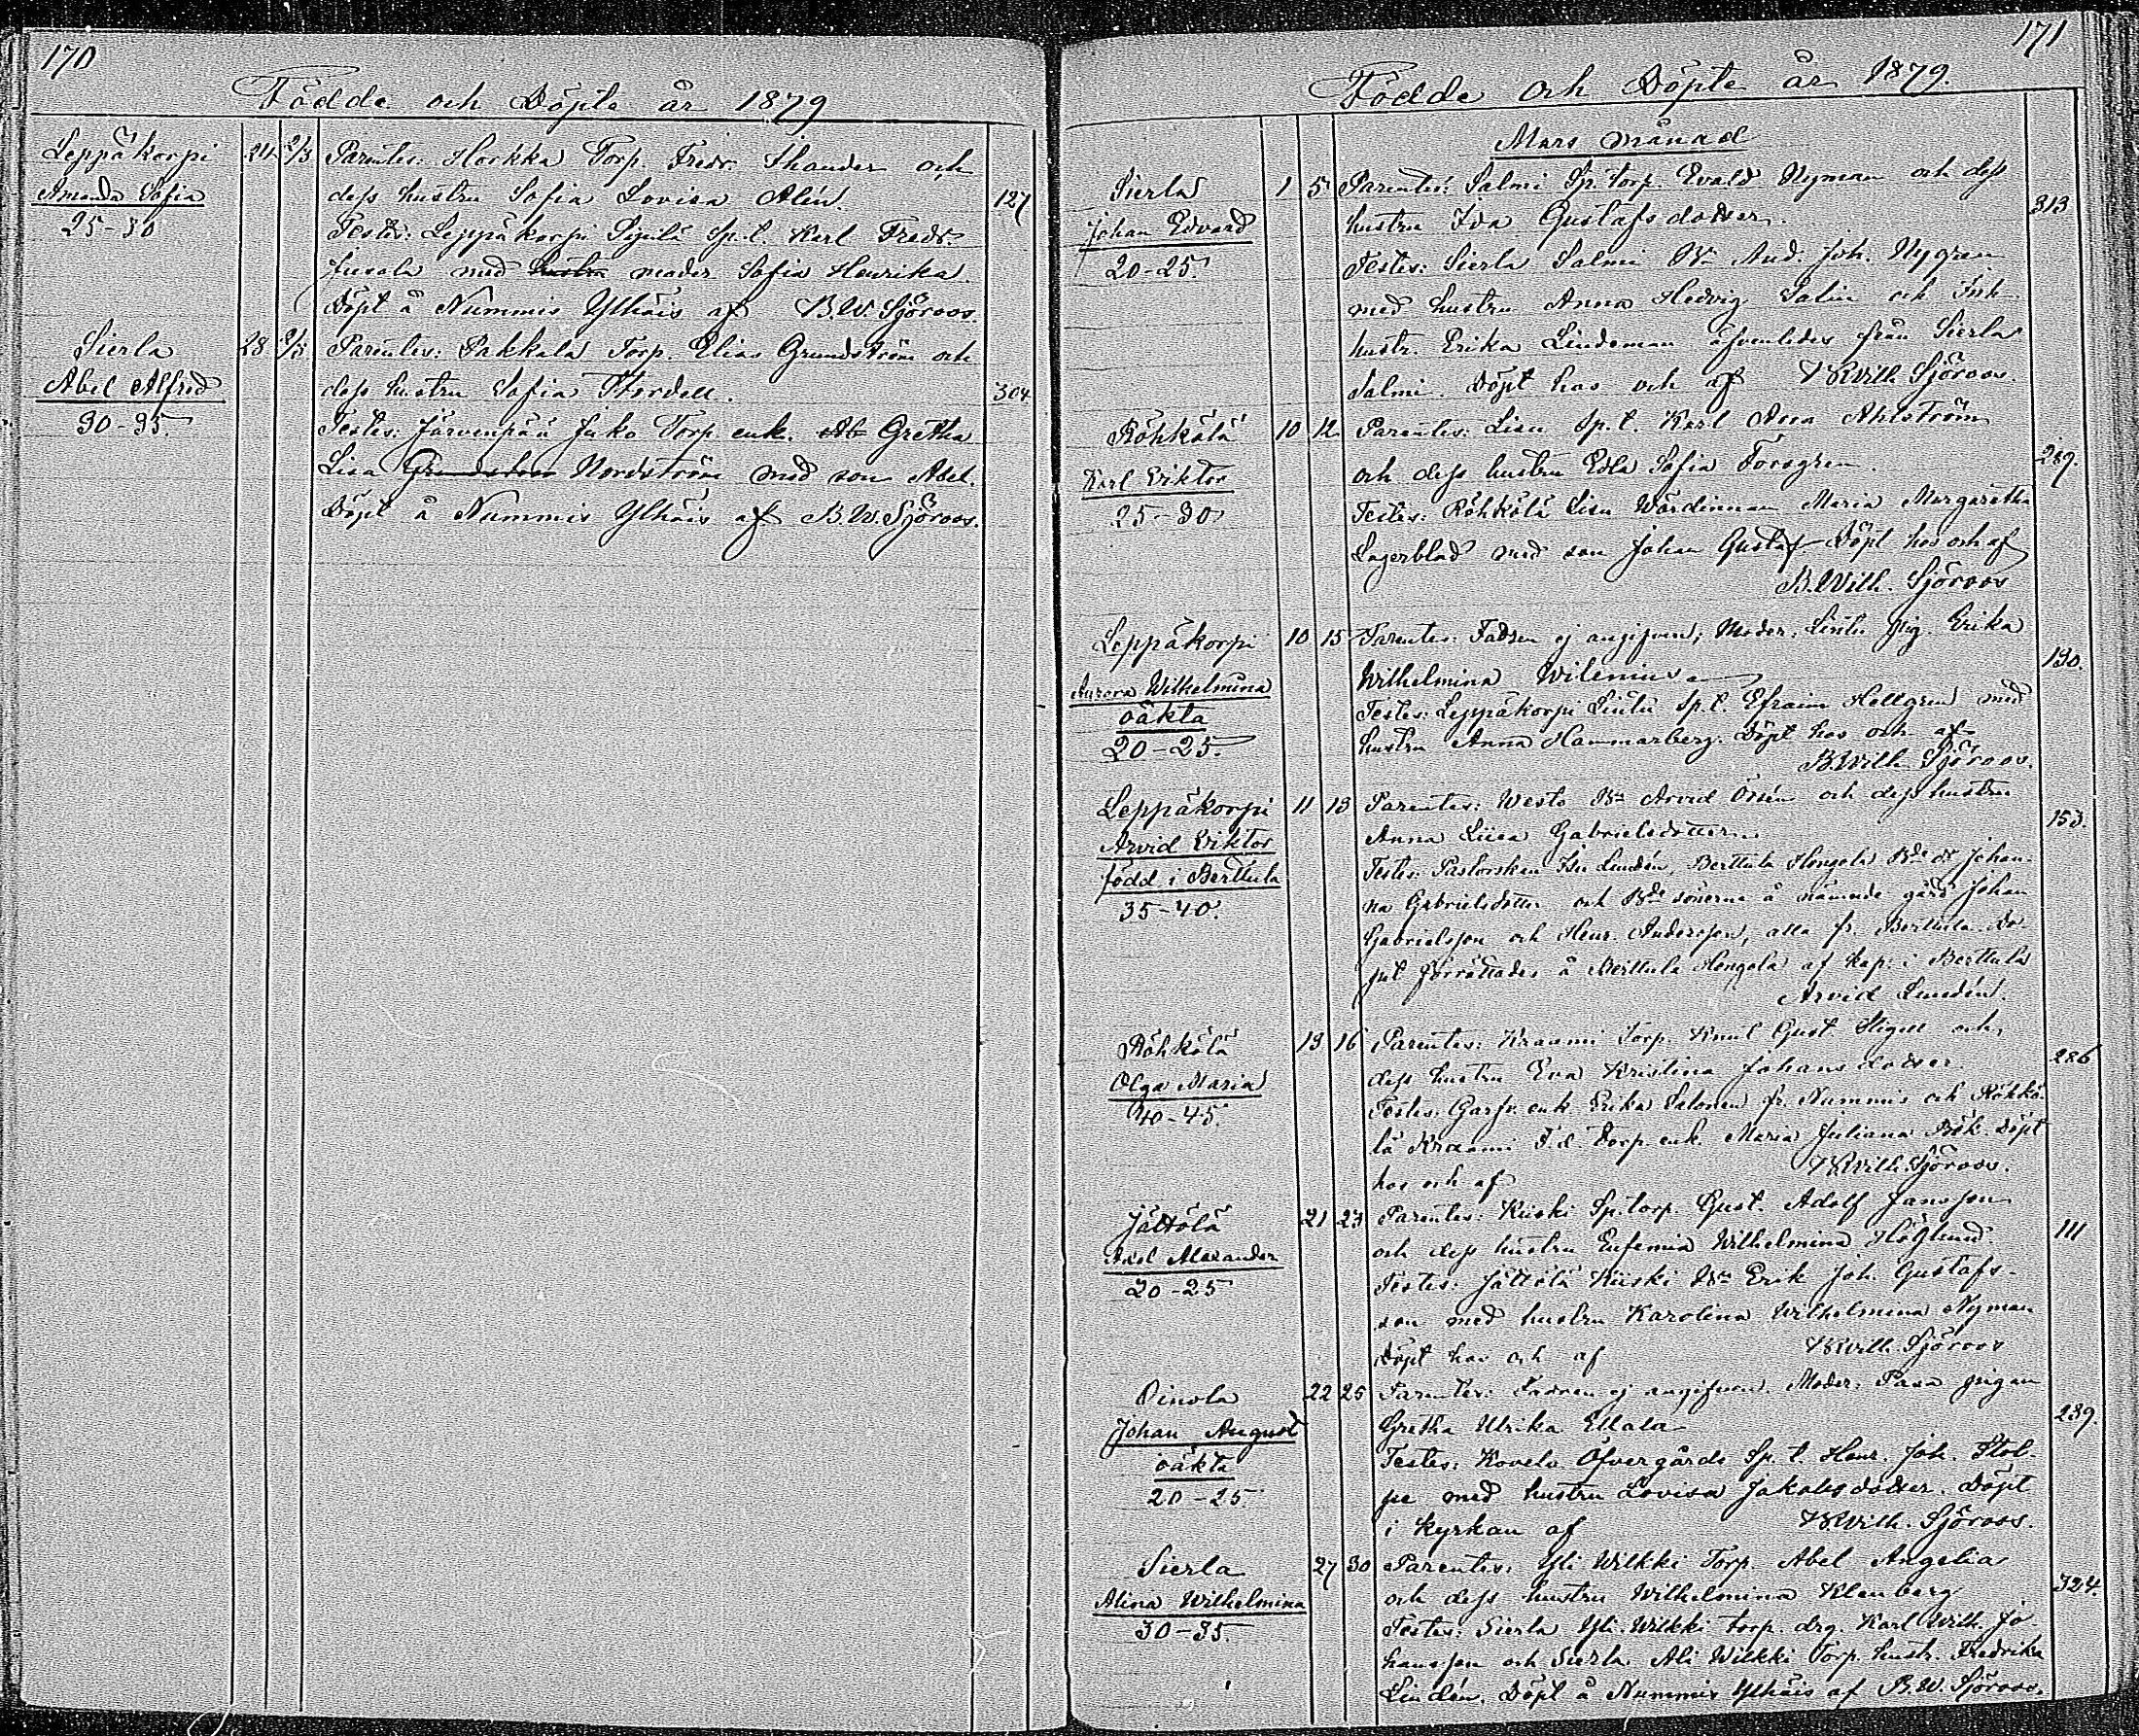 170
Födde och Döpte år 1879
Leppäkorpi 24 2/3 Parentes: Horkka Torp. Fredr. Thander och
Amanda Sofia dess hustru Sofia Lovisa Alén. 127
25-30 Testes: Leppäkorpi Sipilä Sp.t. Karl Fredr.
Jusola med hustru moder Sofia Henrika.
Döpt å Nummis Ylhäis af B.W. Sjöroos.
Sierla 28 2/3 Parentes: Pakkala Torp. Elias Grundström och
Abel Alfred dess hustru Sofia Thordell. 304
30-35. Testes: Järvenpää Juko Torp. enk. Ab Gretha
Lisa Grundström Nordström med son Abel.
Döpt å Nummis Ylhäis af B.W. Sjöroos.
171
Födde och Döpte år 1879.
Mars månad
Sierla 1 5 Parentes: Salmi Sp. torp. Evald Nyman och dess
Johan Edvard hustru Ida Gustafsdotter. 313
20-25. Testes: Sierla Salmi And. Joh. Nygren
med hustru Anna Hedvig Salin och Inh.
hustr. Erika Lindeman äfvenledes från Sierla
Salmi. Döpt hos och af B.Wilh. Sjöroos.
Röhkölä 10 12 Parentes: Lisu Sp.t. Karl Ahlström
Karl Viktor och dess hustru Edla Sofia Forsgren. 289.
25-30 Testes: Röhkölä Lisu Wärdinnan Maria Margaretha
Lagerblad med son Johan Gustaf Döpt hos och af
B.Wilh. Sjöroos
Leppäkorpi 10 15 Parentes: Fadren ej angifven; Moder: Lintu pig. Erika
Aurora Wilhelmina Wilhelmina Wilenius 130.
oäkta Testes: Leppäkorpi Lintu Sp.t. Efraim Hellgren med
20-25. hustru Anna Hammarberg. Döpt hos och af
B.Wilh. Sjöroos.
Leppäkorpi 11 13 Parentes: Westo Bn Arvid Örsén och dess hustru
Arvid Viktor Anna Liisa Gabrielsdotter. 153.
född i Berttula Testes: Pastorskan Lindén, Berttula Hongola Johan-
35-40. na Gabrielsdotter och sönerna å nämnde gård Johan
Gabrielsson och Henr. Andersson, alla fr. Berttula. Do-
pet förrättades å Berttula Hongola af kap. i Berttula
Arvid Lindén.
Röhkölä 13 16 Parentes: Kraami Torp. Knut Gust Stigell och
Olga Maria dess hustru Eva Kristina Johansdotter 286
40-45. Testes: Garfv. enk. Erika Salonen fr. Nummis och Röhkö-
lä Kraami F.d. Torp. enk. Maria Juliana Bök. Döpt
hos och af B.Wilh. Sjöroos.
Jättölä 21 23 Parentes: Kiiski Sp. torp. Gust. Adolf Jansson
Axel Alexander och dess hustru Eufemia Wilhelmina Höglund. 111
20-25 Testes: Jättölä Kiiski Bn Erik Joh. Gustafs-
son med hustru Karolina Wilhelmina Nyman
Döpt hos och af B.Wilh. Sjöroos
Oinola 22 25 Parentes: Fadren ej angifven. Moder: Pasa pigan
Johan August Gretha Ulrika Ellala 239.
oäkta Testes: Kovela Öfvergårds Sp.t. Henr. Joh. Stol-
20-25. pe med hustru Lovisa Jakobsdotter. Döpt
i kyrkan af B.Wilh. Sjöroos.
Sierla 27 30 Parentes: Yli Wilkki Torp. Abel Angelia
Alina Wilhelmina och dess hustru Wilhelmina Klenberg 324.
30-35. Testes: Sierla Yli Wilkki torp. drg. Karl Wilh. Jo-
hansson och Sierla Ali Wilkki Torp. hustr. Fredrika
Lindén. Döpt å Nummis Ylhäis af B.W. Sjöroos.